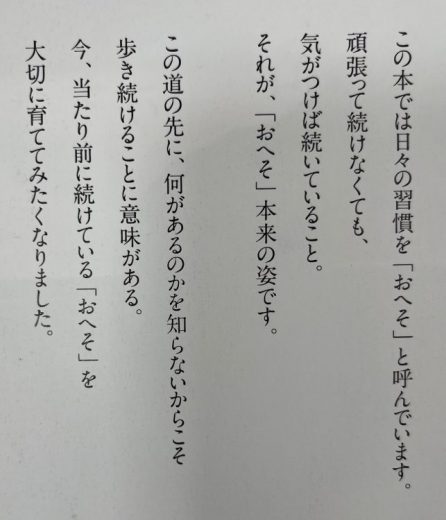 この本では日々の習慣を「おへそ」と呼んでいます。
頑張って続けなくても、
気がつけば続いていること。
それが、「おへそ」本来の姿です。
この道の先に、何があるのかを知らないからこそ
歩き続けることに意味がある。
今、当たり前に続けている「おへそ」を
大切に育ててみたくなりました。